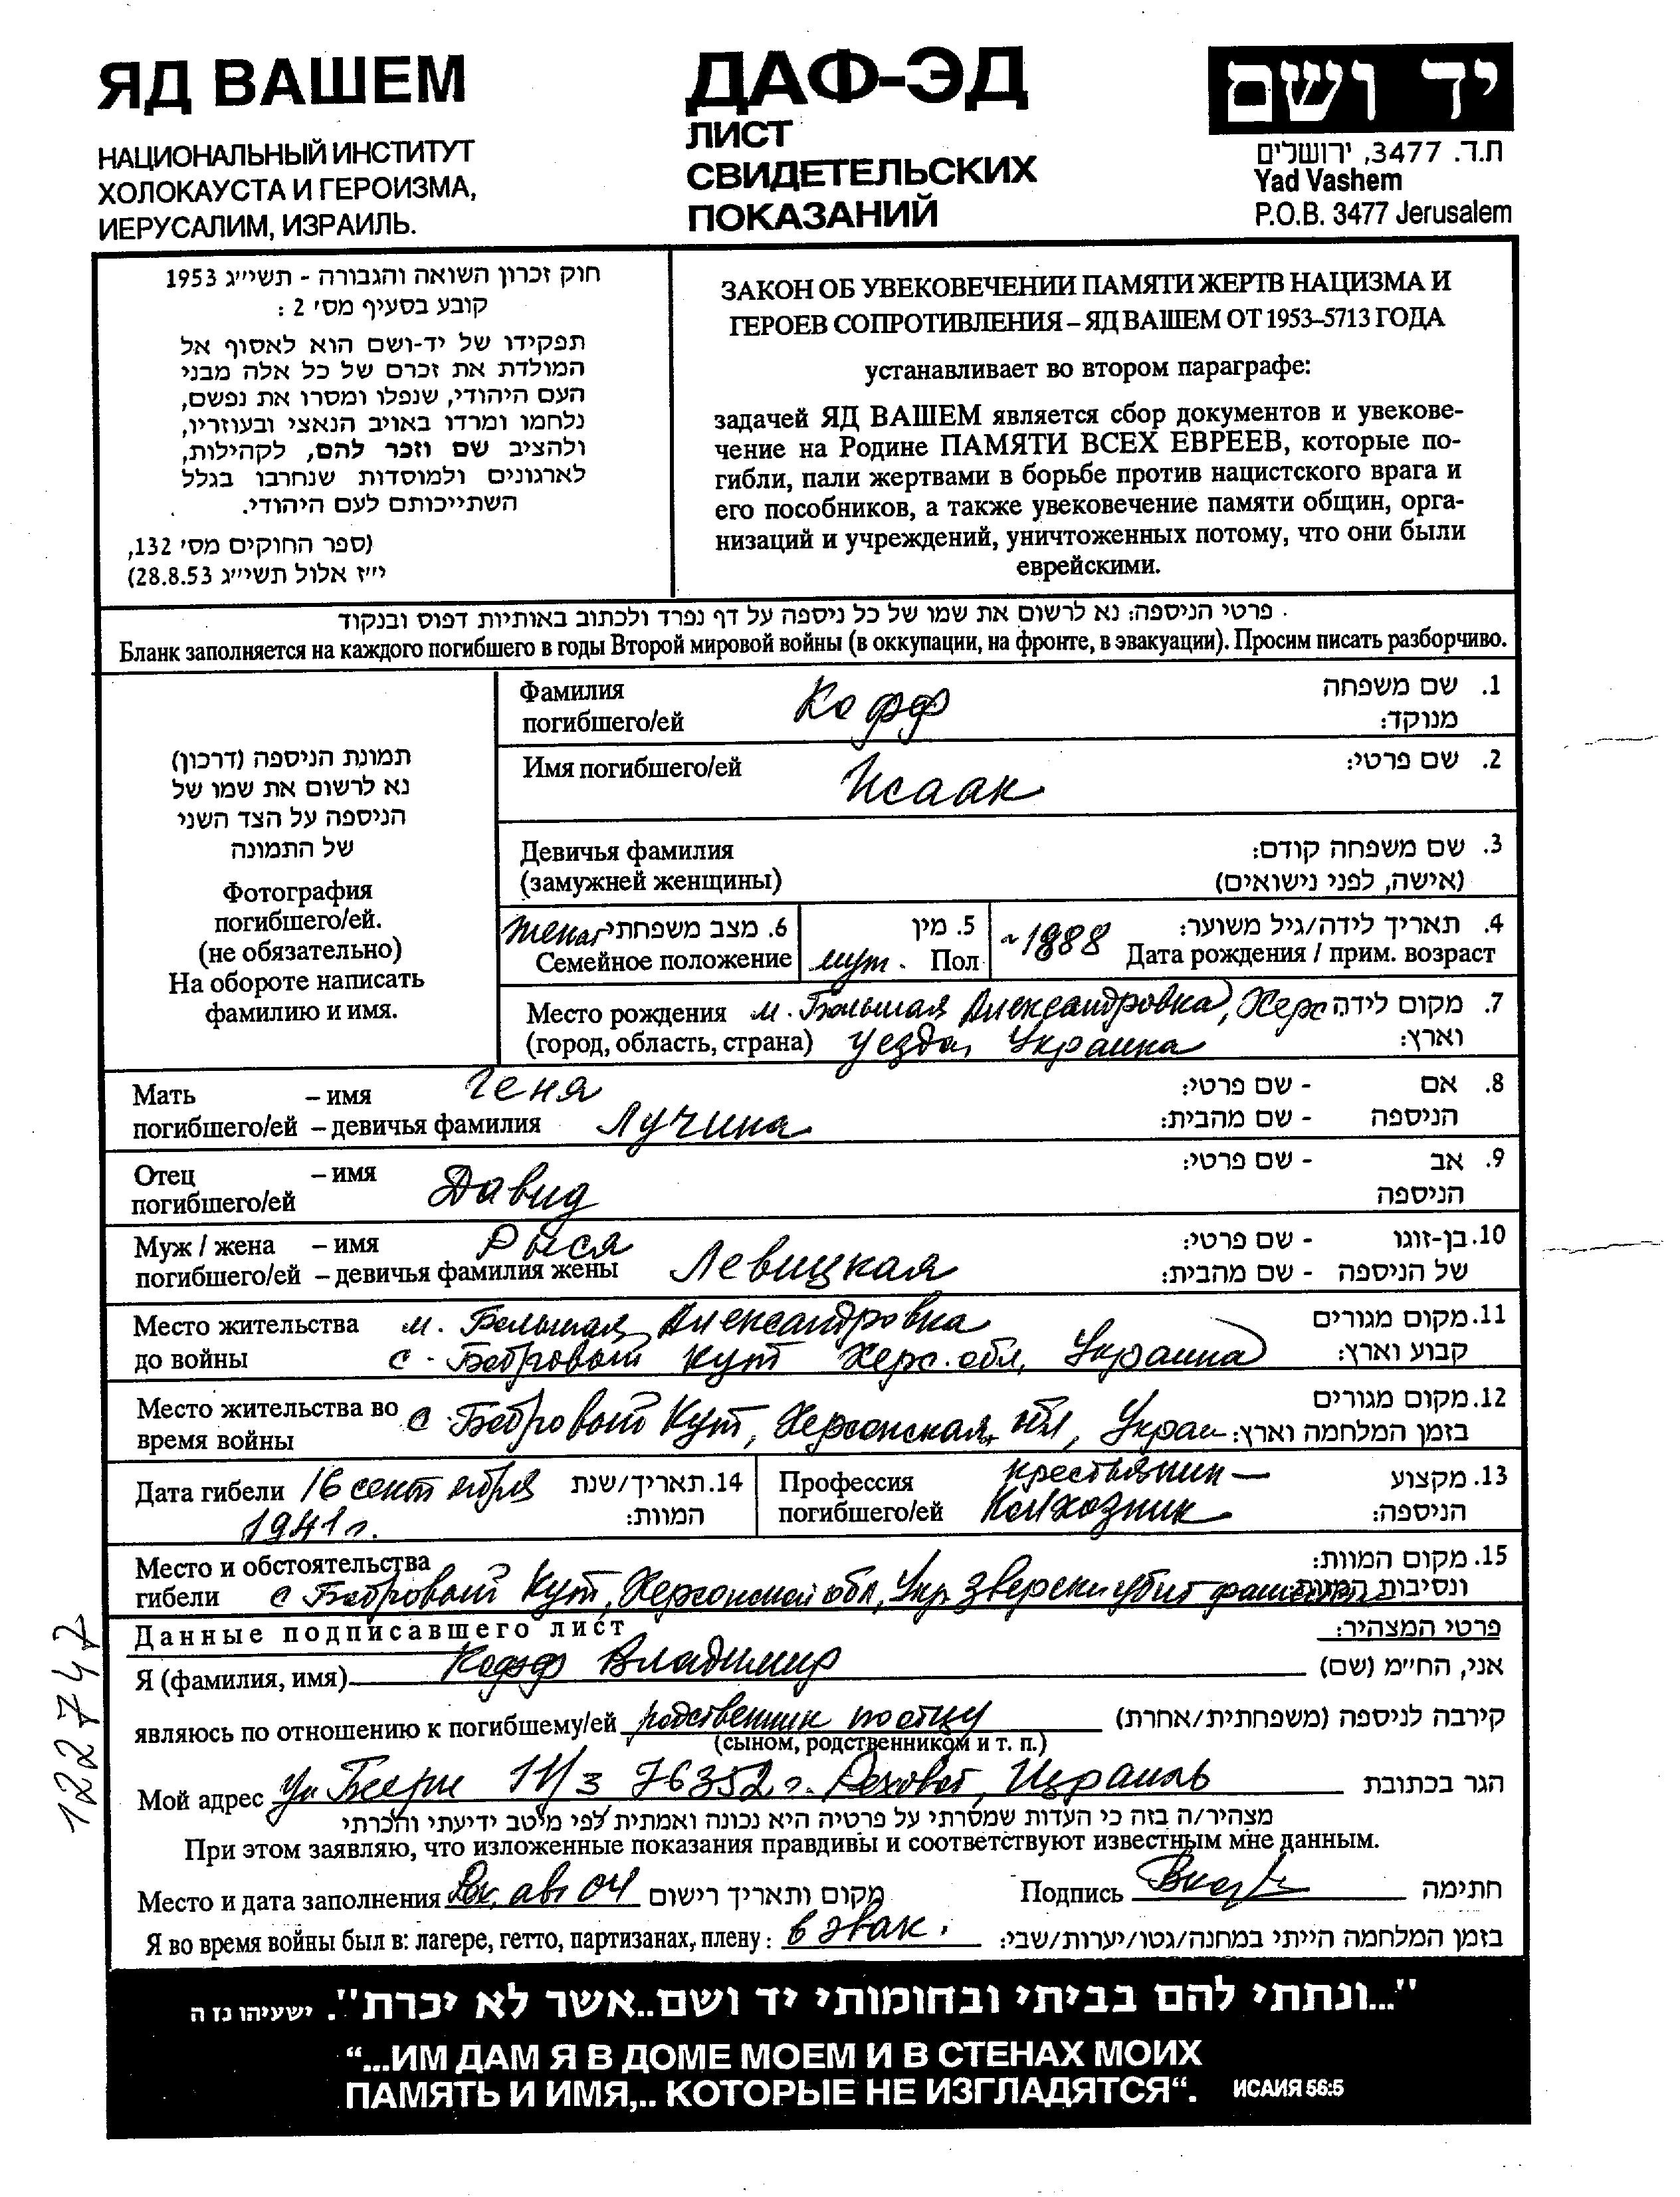 ЯД ВАШЕМ
НАЦИОНАЛЬНЫЙ ИНСТИТУТ
ХОЛОКАУСТА И ГЕРОИЗМА,
ИЕРУСАЛИМ, ИЗРАИЛЬ.
ДАФ-ЭД
ЛИСТ
СВИДЕТЕЛЬСКИХ
ПОКАЗАНИЙ
יד ושם
ת.ד. 3477, ירושלים
Yad Vashem
P.O.B. 3477 Jerusalem
חוק זכרון השואה והגבורה - תשי״ג 1953
קובע בסעיף מס׳ 2 :
תפקידו של יד-ושם הוא לאסוף אל
המולדת את זכרם של כל אלה מבני
העם היהודי, שנפלו ומסרו את נפשם,
נלחמו ומרדו באויב הנאצי ובעוזריו,
ולהציב שם וזכר להם, לקהילות,
לארגונים ולמוסדות שנחרבו בגלל
השתייכותם לעם היהודי.
(ספר החוקים מס׳ 132,
י״ז אלול תשי״ג 28.8.53)
ЗАКОН ОБ УВЕКОВЕЧЕНИИ ПАМЯТИ ЖЕРТВ НАЦИЗМА И
ГЕРОЕВ СОПРОТИВЛЕНИЯ – ЯД ВАШЕМ ОТ 1953–5713 ГОДА
устанавливает во втором параграфе:
задачей ЯД ВАШЕМ является сбор документов и увекове-
чение на Родине ПАМЯТИ ВСЕХ ЕВРЕЕВ, которые по-
гибли, пали жертвами в борьбе против нацистского врага и
его пособников, а также увековечение памяти общин, орга-
низаций и учреждений, уничтоженных потому, что они были
еврейскими.
פרטי הניספה: נא לרשום את שמו של כל ניספה על דף נפרד ולכתוב באותיות דפוס ובנקוד .
Бланк заполняется на каждого погибшего в годы Второй мировой войны (в оккупации, на фронте, в эвакуации). Просим писать разборчиво.
תמונת הניספה (דרכון)
נא לרשום את שמו של
הניספה על הצד השני
של התמונה
Фотография
погибшего/ей.
(не обязательно)
На обороте написать
фамилию и имя.
Фамилия Кофф 1. שם משפחה
погибшего/ей מנוקד:
Имя погибшего/ей Исаак 2. שם פרטי:
Девичья фамилия 3. שם משפחה קודם:
(замужней женщины) (אישה, לפני נישואים)
женат 6. מצב משפחתי 5. מין ~1888 4. תאריך לידה/גיל משוער:
Семейное положение муж. Пол Дата рождения / прим. возраст
Место рождения м. Большая Александровка, Херс. 7. מקום לידה
(город, область, страна) уезда, Украина וארץ:
Мать – имя Геня 8. אם - שם פרטי:
погибшего/ей – девичья фамилия Лучина הניספה - שם מהבית:
Отец – имя Давид 9. אב - שם פרטי:
погибшего/ей הניספה
Муж / жена – имя Рыся 10. בן-זוגו - שם פרטי:
погибшего/ей – девичья фамилия жены Левицкая של הניספה - שם מהבית:
Место жительства м. Большая Александровка 11. מקום מגורים
до войны с. Бобровый Кут Херс. обл, Украина קבוע וארץ:
Место жительства во с. Бобровый Кут, Херсонская обл, Украи 12. מקום מגורים
время войны בזמן המלחמה וארץ:
Дата гибели 16 сентября 14. תאריך/שנת
1941 г. המוות:
Профессия крестьянин – 13. מקצוע
погибшего/ей Колхозник הניספה:
Место и обстоятельства 15. מקום המוות:
гибели с Бобровый Кут, Херсонской обл, Укр. Зверски убит ונסיבות המוות
Данные подписавшего лист פרטי המצהיר:
Я (фамилия, имя) Кофф Владимир אני, הח״מ (שם)
являюсь по отношению к погибшему/ей родственник по отцу קירבה לניספה (משפחתית/אחרת)
(сыном, родственником и т. п.)
Мой адрес Ул Беери 11/3 76352 г. Реховот, Израиль הגר בכתובת
מצהיר/ה בזה כי העדות שמסרתי על פרטיה היא נכונה ואמתית לפי מיטב ידיעתי והכרתי
При этом заявляю, что изложенные показания правдивы и соответствуют известным мне данным.
Место и дата заполнения Рех, авг 04 מקום ותאריך רישום Подпись חתימה
Я во время войны был в: лагере, гетто, партизанах, плену: в эвак. בזמן המלחמה הייתי במחנה/גטו/יערות/שבי:
122747
"...ונתתי להם בביתי ובחומותי יד ושם..אשר לא יכרת". ישעיהו נז ה
“...ИМ ДАМ Я В ДОМЕ МОЕМ И В СТЕНАХ МОИХ
ПАМЯТЬ И ИМЯ,.. КОТОРЫЕ НЕ ИЗГЛАДЯТСЯ“. ИСАИЯ 56:5